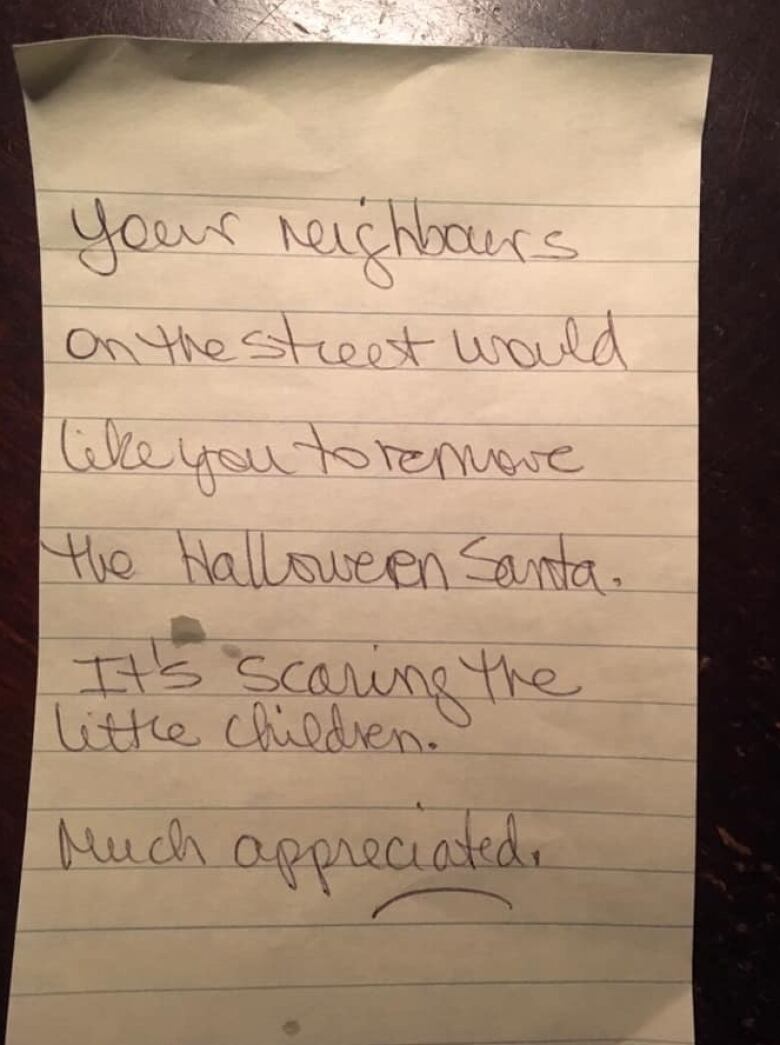 Your neighbours
on the street would
like you to remove
the Halloween Santa.
It's scaring the
little children.
Much appreciated.